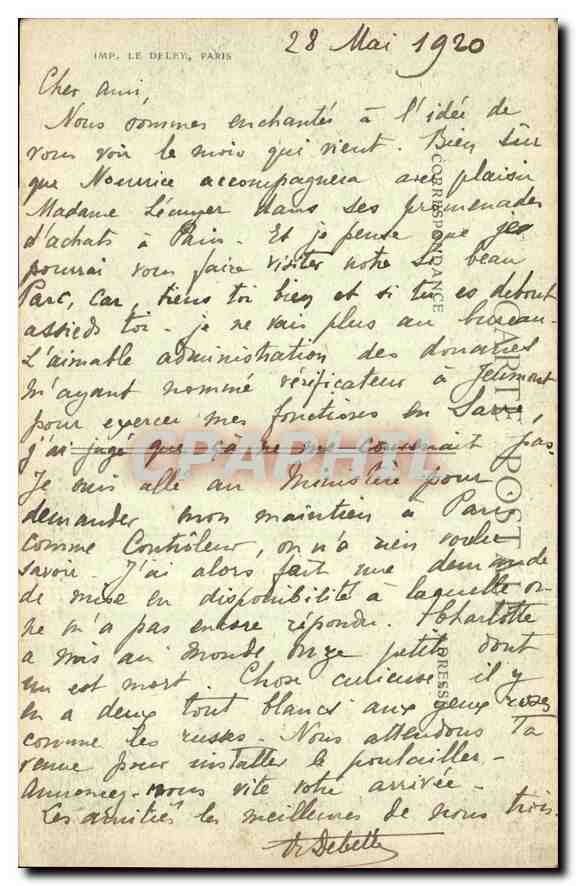 28 Mai 1920
IMP. LE DELEY, PARIS
Cher ami,
Nous sommes enchantés à l'idée de
vous voir le mois qui vient. Bien sûr
que Nourrice accompagnera avec plaisir
Madame Lécuyer dans ses promenades
d'achats à Paris. Et je pense que je
pourrai vous faire visiter notre si beau
Parc, car, tiens toi bien et si tu es debout
assieds toi - je ne vais plus au bureau.
L'aimable administration des douanes
m'ayant nommé vérificateur à Jeumont
pour exercer mes fonctions en Sarre,
j'ai jugé que çà ne me convenait pas.
Je suis allé au Ministère pour
demander mon maintien à Paris
comme Contrôleur, on n'a rien voulu
savoir. J'ai alors fait une demande
de mise en disponibilité à laquelle on
ne m'a pas encore répondu. Charlotte
a mis au monde onze petits dont
un est mort. Chose curieuse il y
en a deux tout blancs aux yeux roses
comme les russes. Nous attendons Ta
venue pour installer le poulailler -
Annoncez-nous vite votre arrivée -
Les amitiés les meilleures de nous trois.
CORRESPONDANCE
CARTE POSTALE
ADRESSE
CPAPHIL